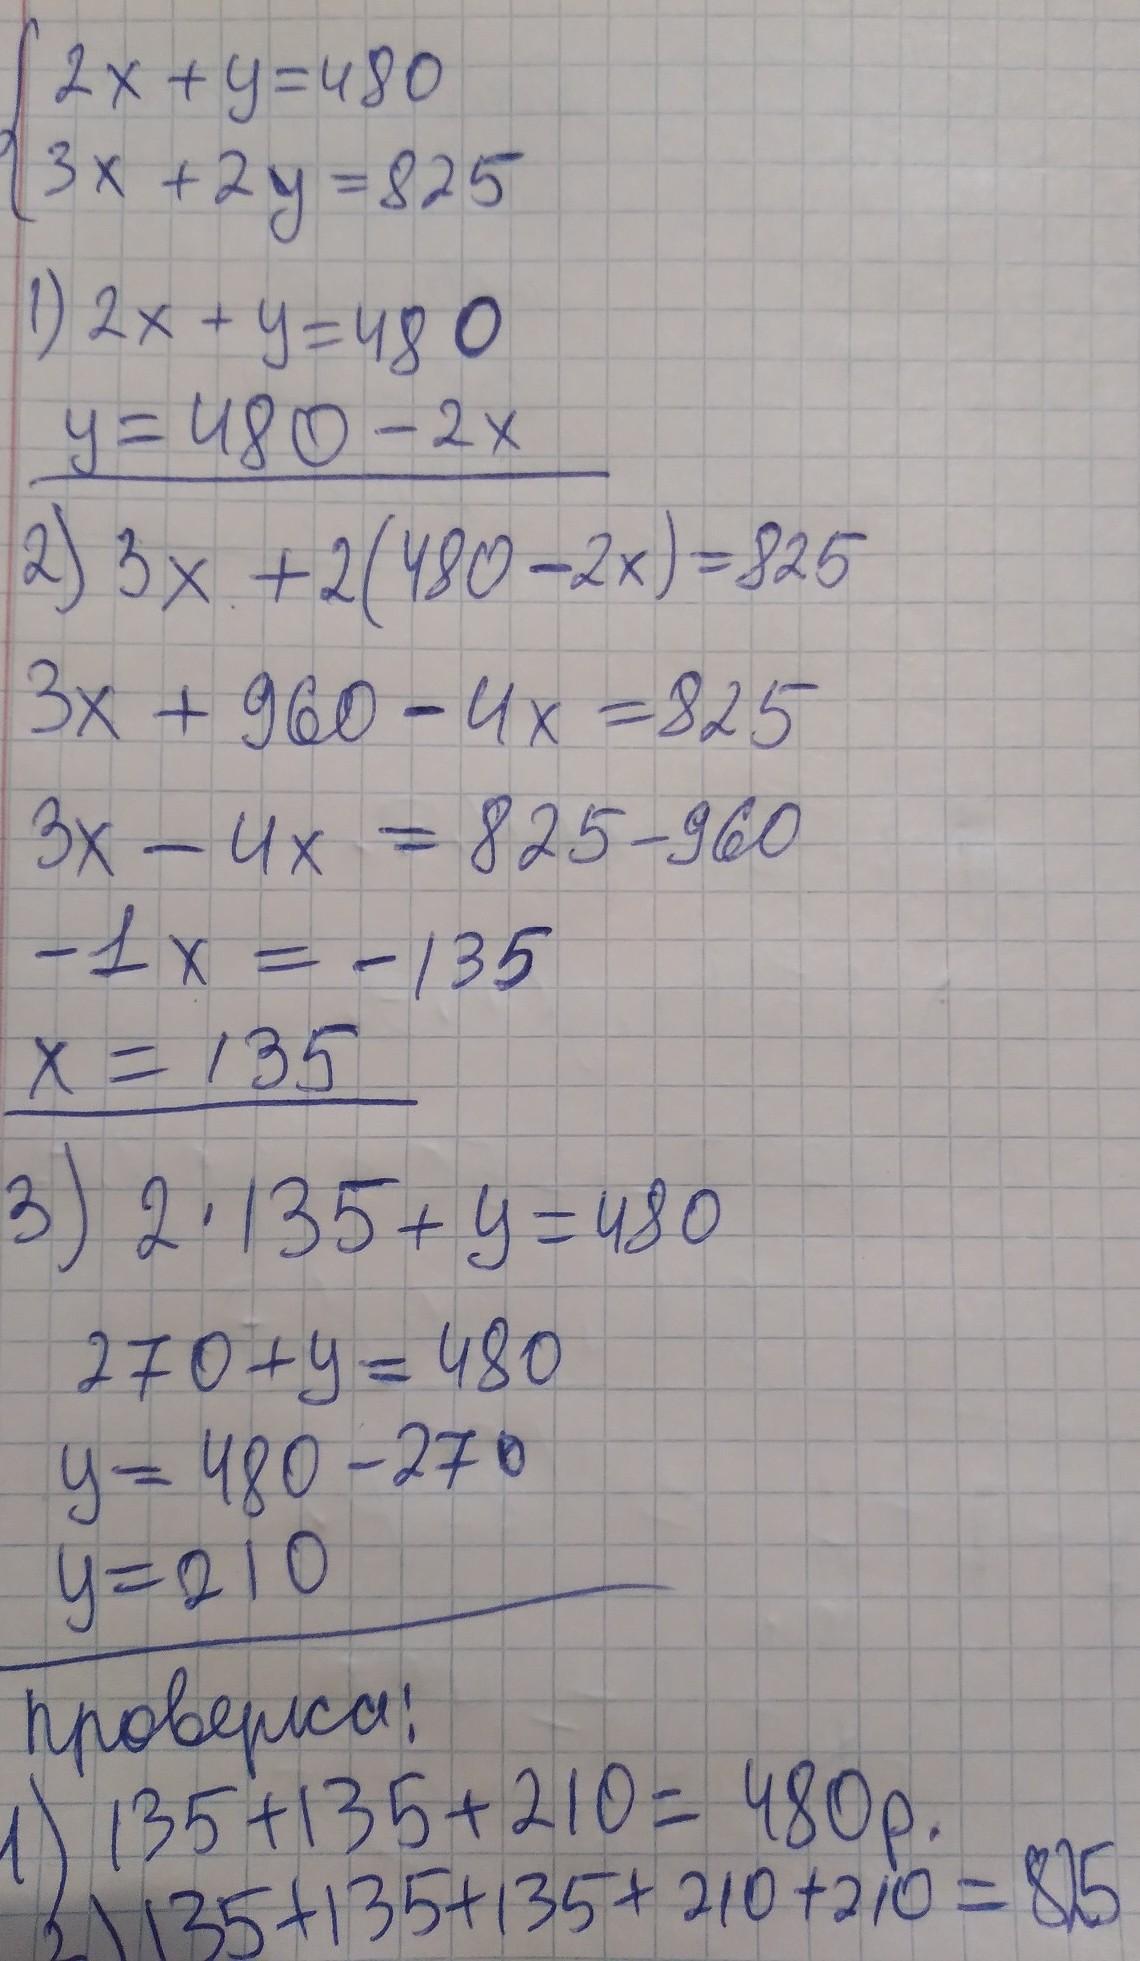 2x + y = 480
3x + 2y = 825
1) 2x + y = 480
y = 480 - 2x
2) 3x + 2(480 - 2x) = 825
3x + 960 - 4x = 825
3x - 4x = 825 - 960
-1x = -135
x = 135
3) 2 · 135 + y = 480
270 + y = 480
y = 480 - 270
y = 210
проверка:
1) 135 + 135 + 210 = 480р.
2) 135 + 135 + 135 + 210 + 210 = 825